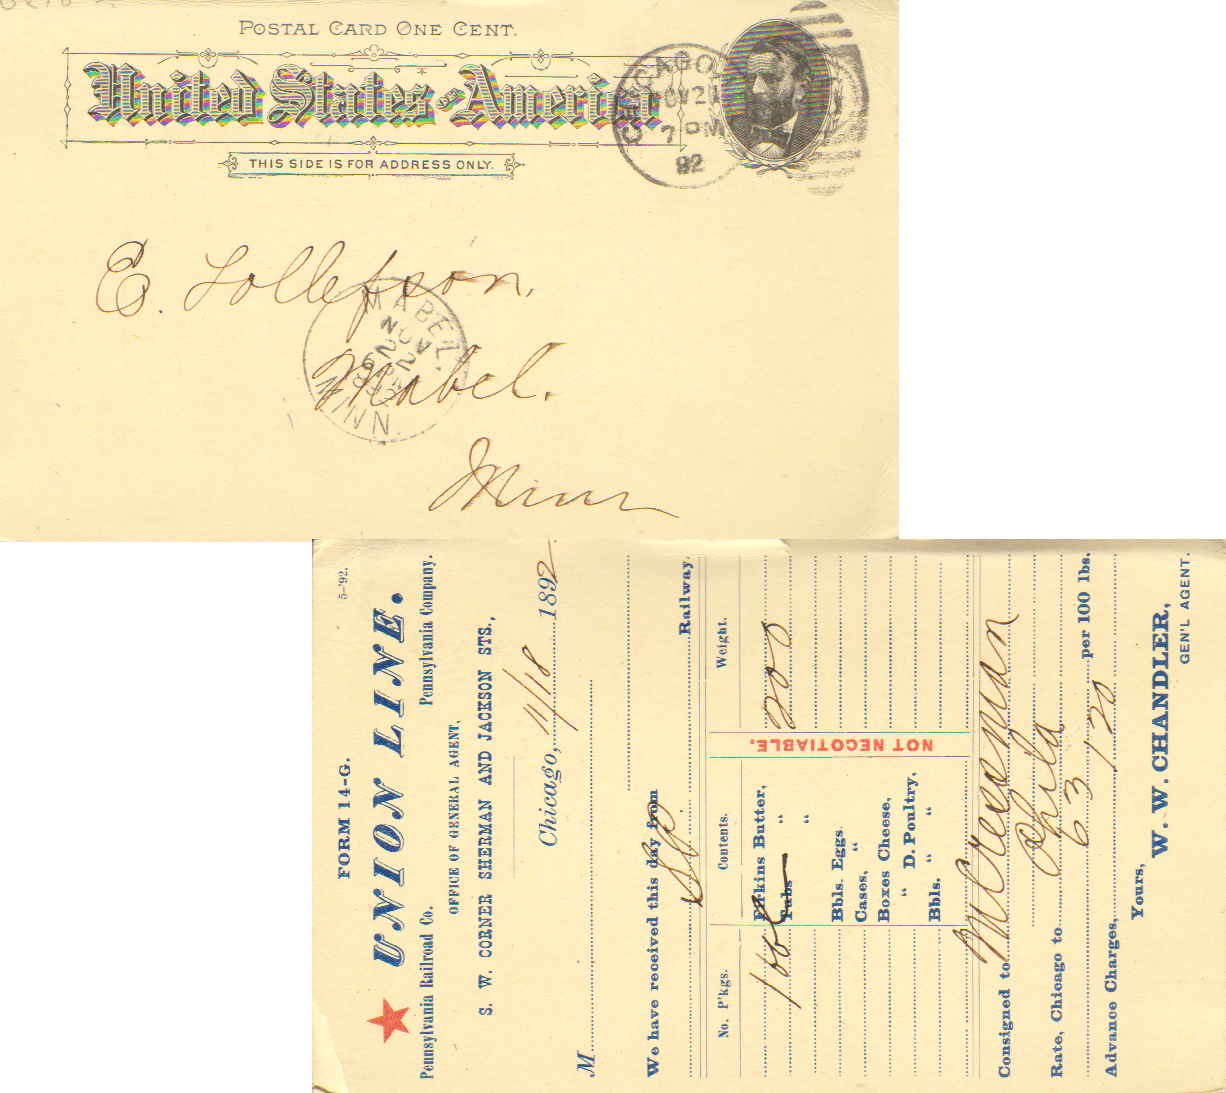 POSTAL CARD ONE CENT.
United States of America
THIS SIDE IS FOR ADDRESS ONLY.
CHICAGO,
NOV 21
7 PM
92
E. Tollefson.
Mabel.
Minn
MABEL,
NOV
22
MINN.
5-'92.
FORM 14-G.
UNION LINE.
Pennsylvania Railroad Co. Pennsylvania Company.
OFFICE OF GENERAL AGENT,
S. W. CORNER SHERMAN AND JACKSON STS.,
Chicago, 11/18 1892
M
We have received this day from
Railway.
No. P'kgs. Contents. Weight.
1 bbl Firkins Butter, 200
Tubs "
"
Bbls. Eggs.
Cases, "
Boxes Cheese,
" D. Poultry,
Bbls. " "
NOT NEGOTIABLE.
Consigned to
Phila
Rate, Chicago to 63 per 100 lbs.
Advance Charges, 120
Yours,
W. W. CHANDLER,
GEN'L AGENT.